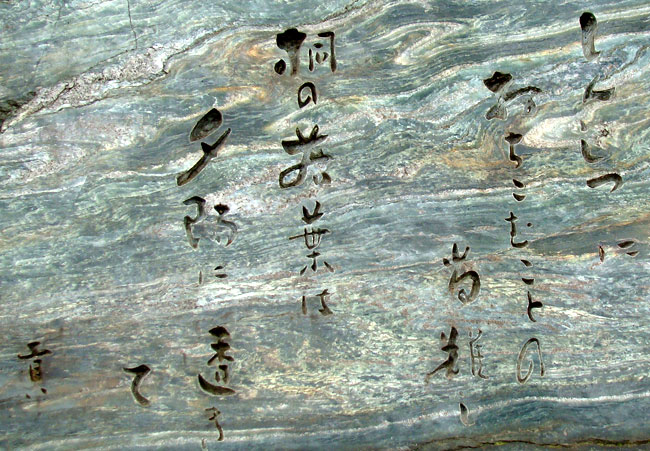 しんじつに
うちこむことの
尚難し
桐の若葉は
夕陽に透き
て
貢